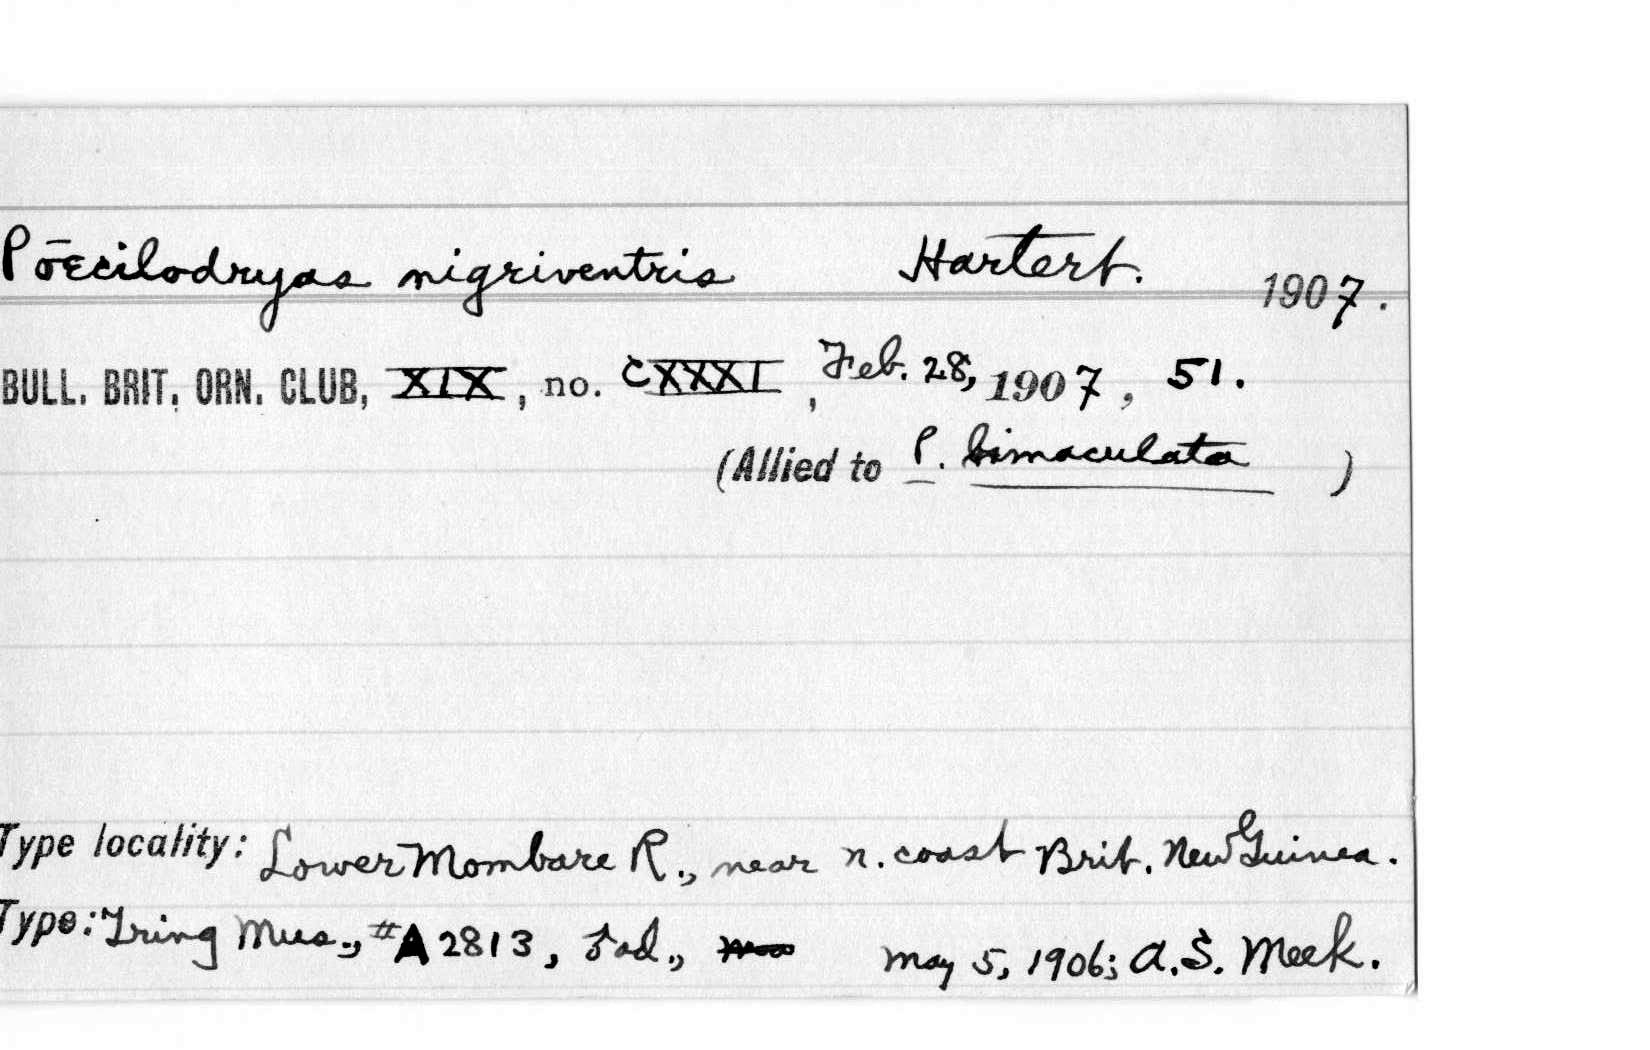 Pōecilodryas nigriventris Hartert. 1907.
BULL. BRIT. ORN. CLUB, XIX, no. CXXXI, Feb. 28, 1907, 51.
(Allied to P. bimaculata )
Type locality: Lower Mombare R., near n. coast Brit. New Guinea.
Type: Tring Mus., #A2813, ad., May 5, 1906; A.S. Meek.